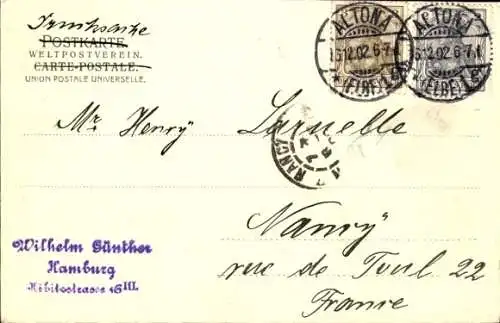 Drucksache
POSTKARTE
WELTPOSTVEREIN.
CARTE-POSTALE.
UNION POSTALE UNIVERSELLE.
ALTONA
12.02.6-7
* (ELBE)
ALTONA
12.02.6-7
* (ELBE)
Mr. Henry Larnelle
NANCY
Nancy
rue de Toul 22
France
Wilhelm Günther
Hamburg
16 III.